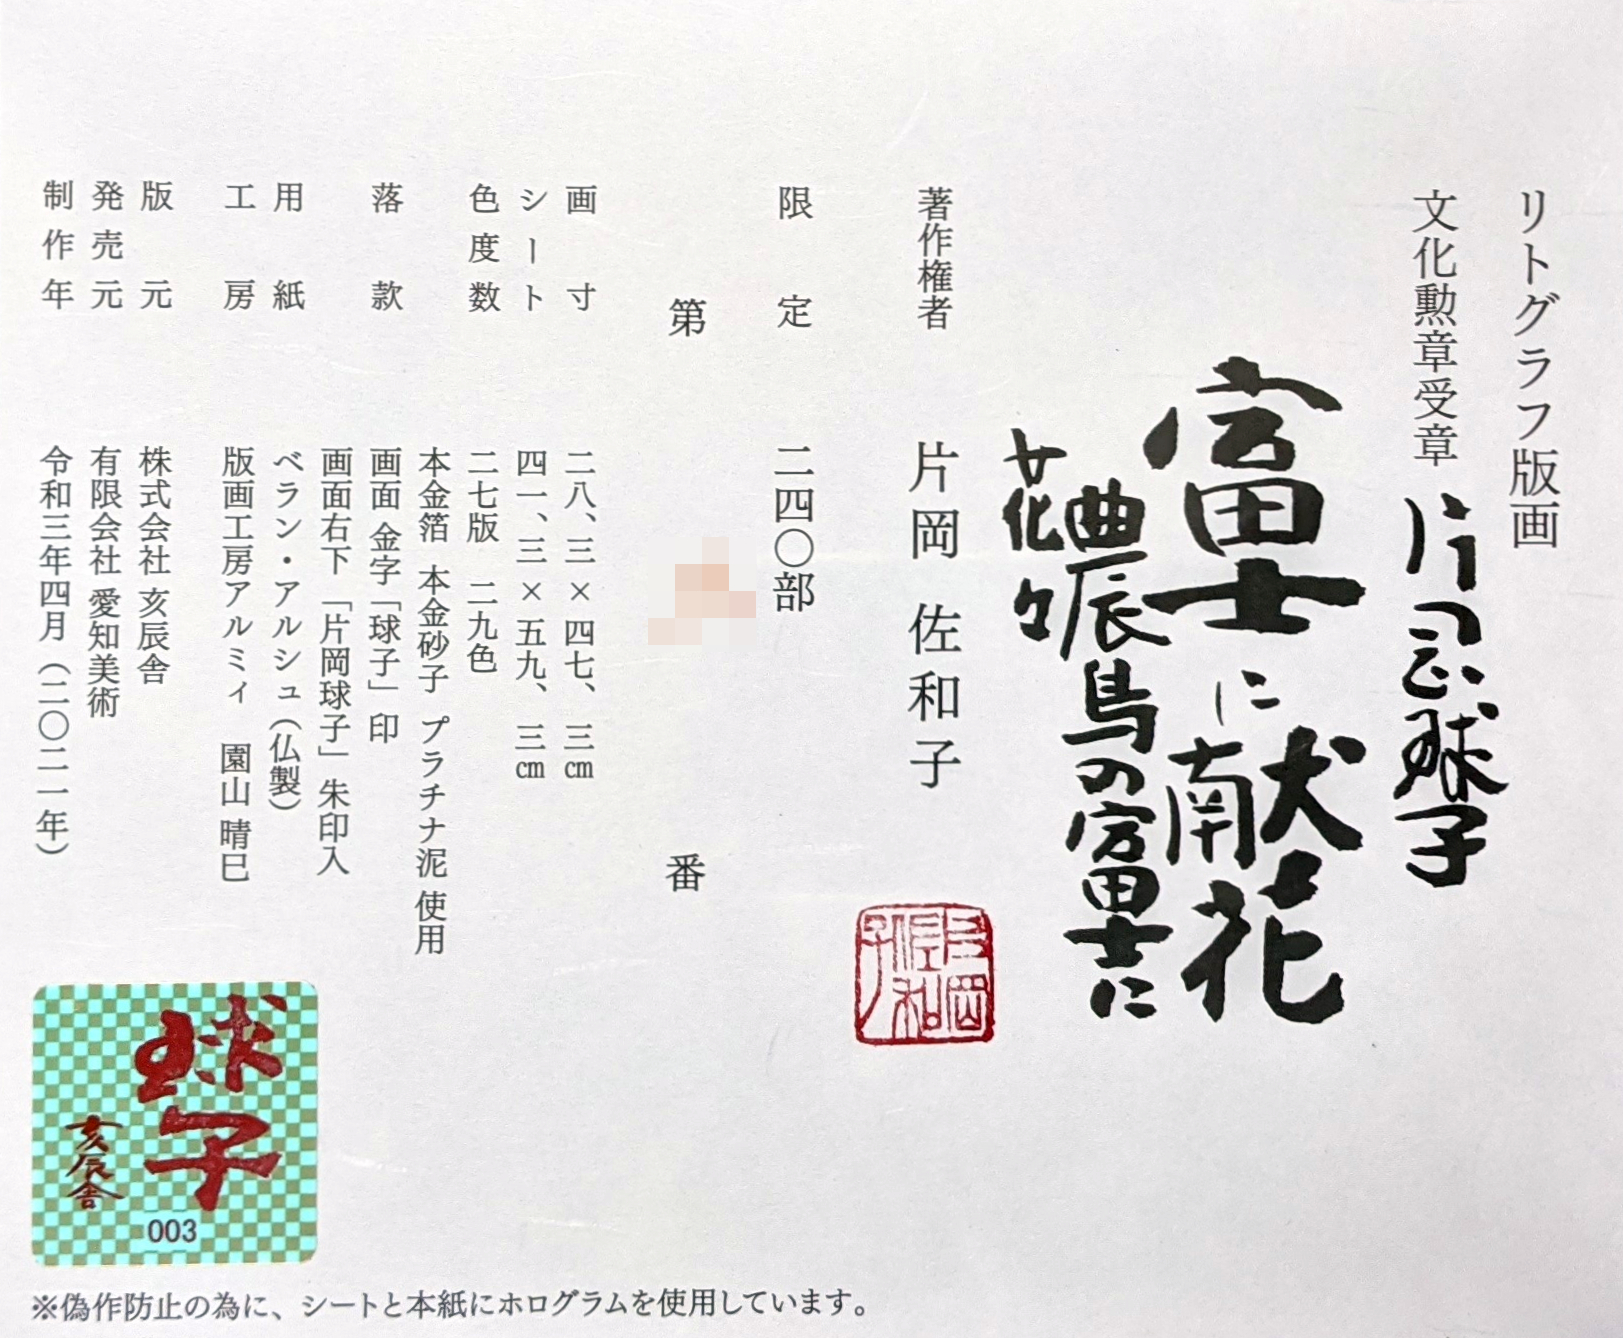 リトグラフ版画
文化勲章受章 片岡球子
富士に献花
農鳥の富士に
花々
著作権者 片岡 佐和子
片岡佐和子
限定 二四〇部
第 番
画寸 二八、三×四七、三㎝
シート 四一、三×五九、三㎝
色度数 二七版 二九色
本金箔 本金砂子 プラチナ泥 使用
落款 画面 金字「球子」印
画面右下 「片岡球子」朱印入
用紙 ベラン・アルシュ(仏製)
工房 版画工房アルミィ 園山 晴巳
版元 株式会社 亥辰舎
発売元 有限会社 愛知美術
制作年 令和三年四月(二〇二一年)
球子
亥辰舎
003
※偽作防止の為に、シートと本紙にホログラムを使用しています。